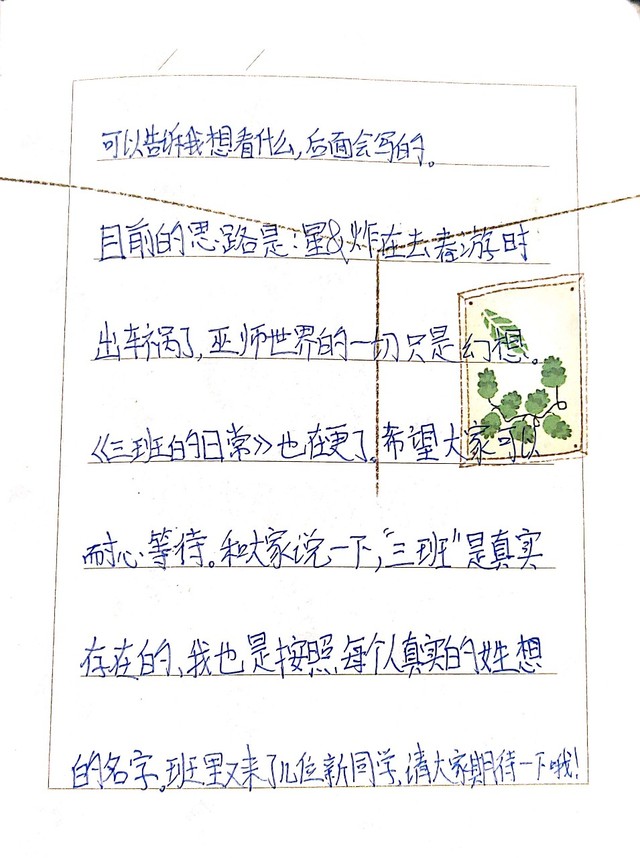 可以告诉我想看什么,后面会写的。
目前的思路是:星&炸在去春游时
出车祸了,巫师世界的一切只是幻想。
《三班的日常》也在更了。希望大家可以
耐心等待。和大家说一下,“三班”是真实
存在的、我也是按照每个人真实的姓想
的名字。班里又来了几位新同学,请大家期待一下哦!